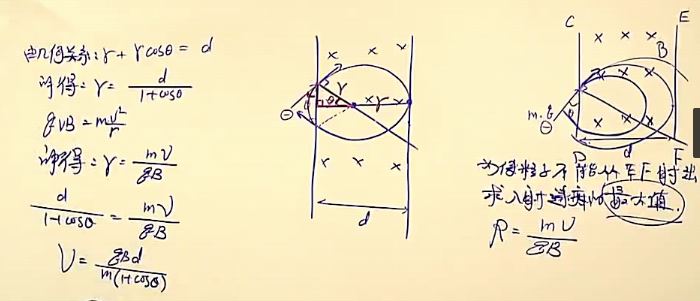 由几何关系: r + r cosθ = d
解得: r = d/(1+cosθ)
qvB = m v²/r
解得: r = mv/(qB)
d/(1+cosθ) = mv/(qB)
V = qBd/(m(1+cosθ))
× × ×
r
θ
× r ×
⊖
× × ×
d
C E
× × ×
B
× ×
m.q
⊖
θ
× ×
D d F
为使粒子不能从EF射出
求入射速度的最大值.
R = mv/(qB)